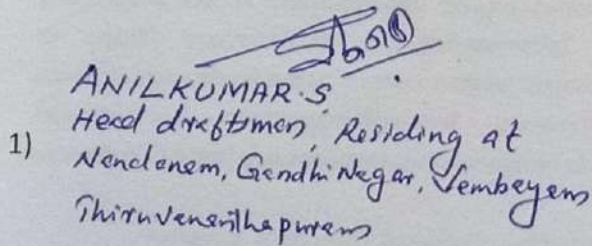 ANILKUMAR.S
Head draftsman, Residing at
1)
Nandanam, Gandhi Nagar, Vembayam
Thiruvananthapuram